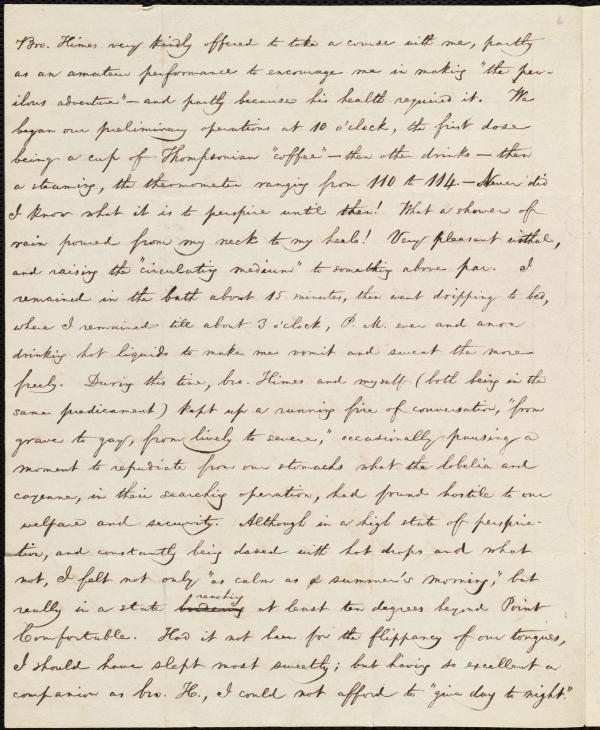 Bro. Himes very kindly offered to take a course with me, partly
as an amateur performance to encourage me in making "the per-
ilous adventure" — and partly because his health required it. We
began our preliminary operations at 10 o'clock, the first dose
being a cup of Thompsonian "coffee" — then other drinks — then
a steaming, the thermometer ranging from 110 to 114. — Never did
I know what it is to perspire until then! What a shower of
rain poured from my neck to my heels! Very pleasant withal,
and raising the "circulating medium" to something above par. I
remained in the bath about 15 minutes, then went dripping to bed,
where I remained till about 3 o'clock, P. M. ever and anon
drinking hot liquids to make me vomit and sweat the more
freely. During this time, bro. Himes and myself (both being in the
same predicament) kept up a running fire of conversation, "from
grave to gay, from lively to severe," occasionally pausing a
moment to repudiate from our stomachs what the lobelia and
cayenne, in their searching operation, had found hostile to our
welfare and security. Although in a high state of perspira-
tion, and constantly being dosed with hot drops and what
not, I felt not only "as calm as a summer's morning," but
really in a state reaching at least ten degrees beyond Point
Comfortable. Had it not been for the flippancy of our tongues,
I should have slept most sweetly; but having so excellent a
companion as bro. H., I could not afford to "give day to night."